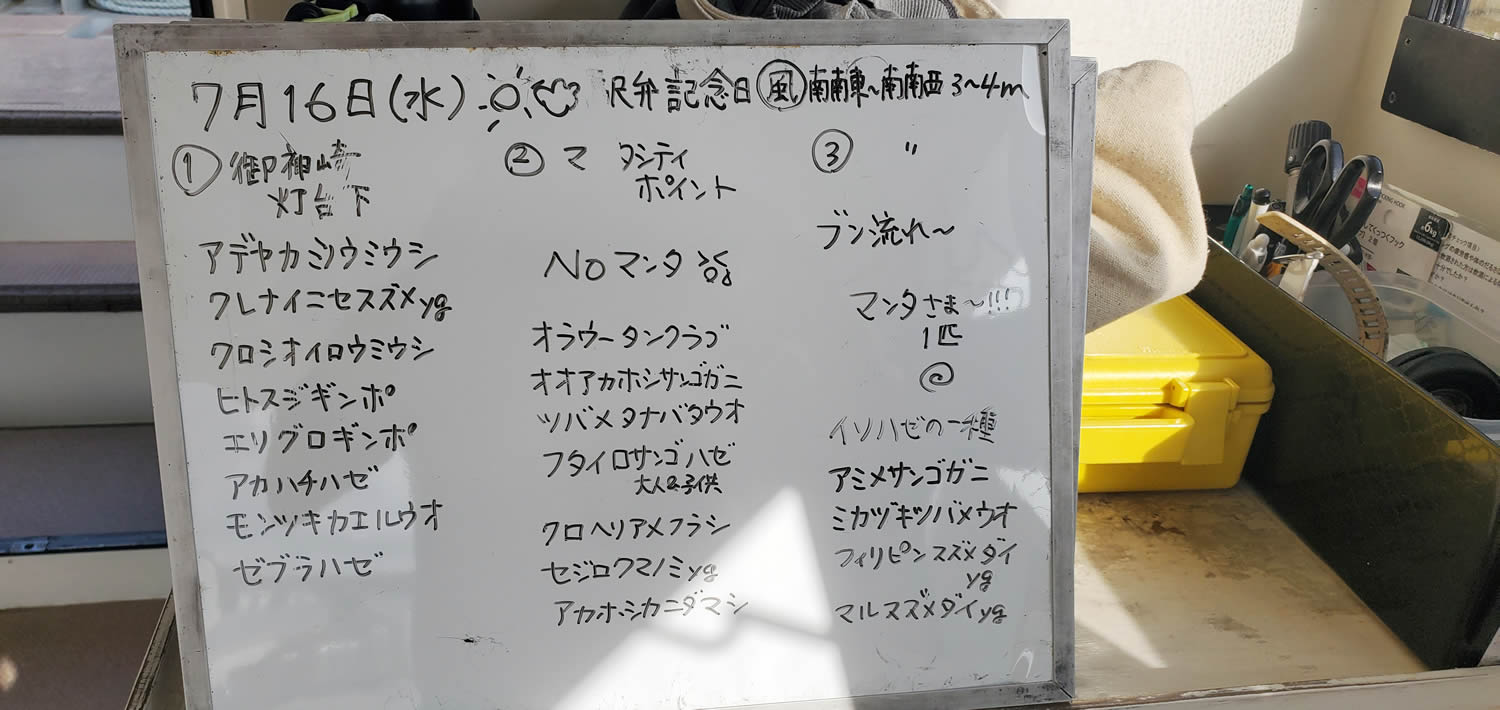 7月16日(水) 尺弁記念日 風 南南東〜南南西 3〜4m
① 御神崎
灯台下
アデヤカミノウミウシ
クレナイニセスズメyg
クロシオイロウミウシ
ヒトスジギンポ
エリグロギンポ
アカハチハゼ
モンツキカエルウオ
ゼブラハゼ
② マ タシティ
ポイント
Noマンタ
オラウータンクラブ
オオアカホシサンゴガニ
ツバメタナバタウオ
フタイロサンゴハゼ
大人&子供
クロヘリアメフラシ
セジロクマノミyg
アカホシカニダマシ
③ 〃
ブン流れ〜
マンタさま〜!!!
1匹
イソハゼの一種
アミメサンゴガニ
ミカヅキツバメウオ
フィリピンスズメダイ
yg
マルスズメダイyg